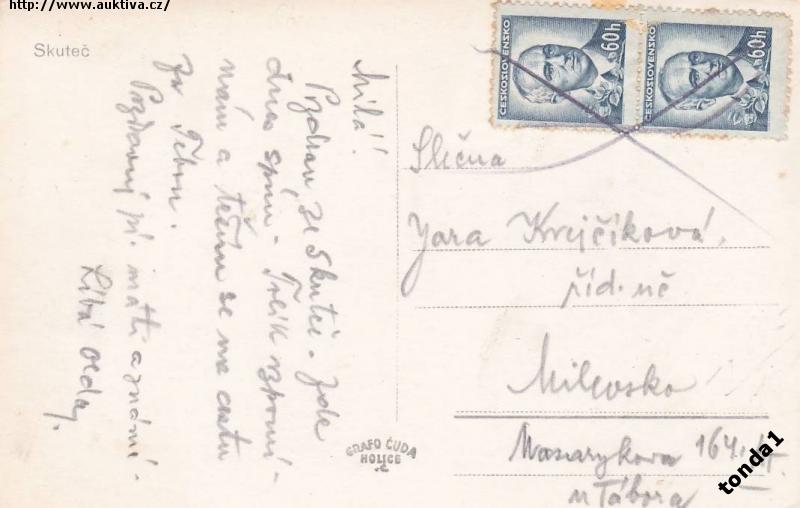 http://www.auktiva.cz/
Skuteč
Milá!
Pozdrav ze Skutče. Zde
dnes spím. Tolik vzpomí-
nám a těším se na cestu
za Tebou.
Pozdravuj p. matk. a známé.
Líbá Olda.
ČESKOSLOVENSKO
60h
ČESKOSLOVENSKO
60h
Slečna
Jara Krejčíková,
říd. uč
Milevsko
Masarykova 164
u Tábora
GRAFO ČUDA
HOLICE
tonda1